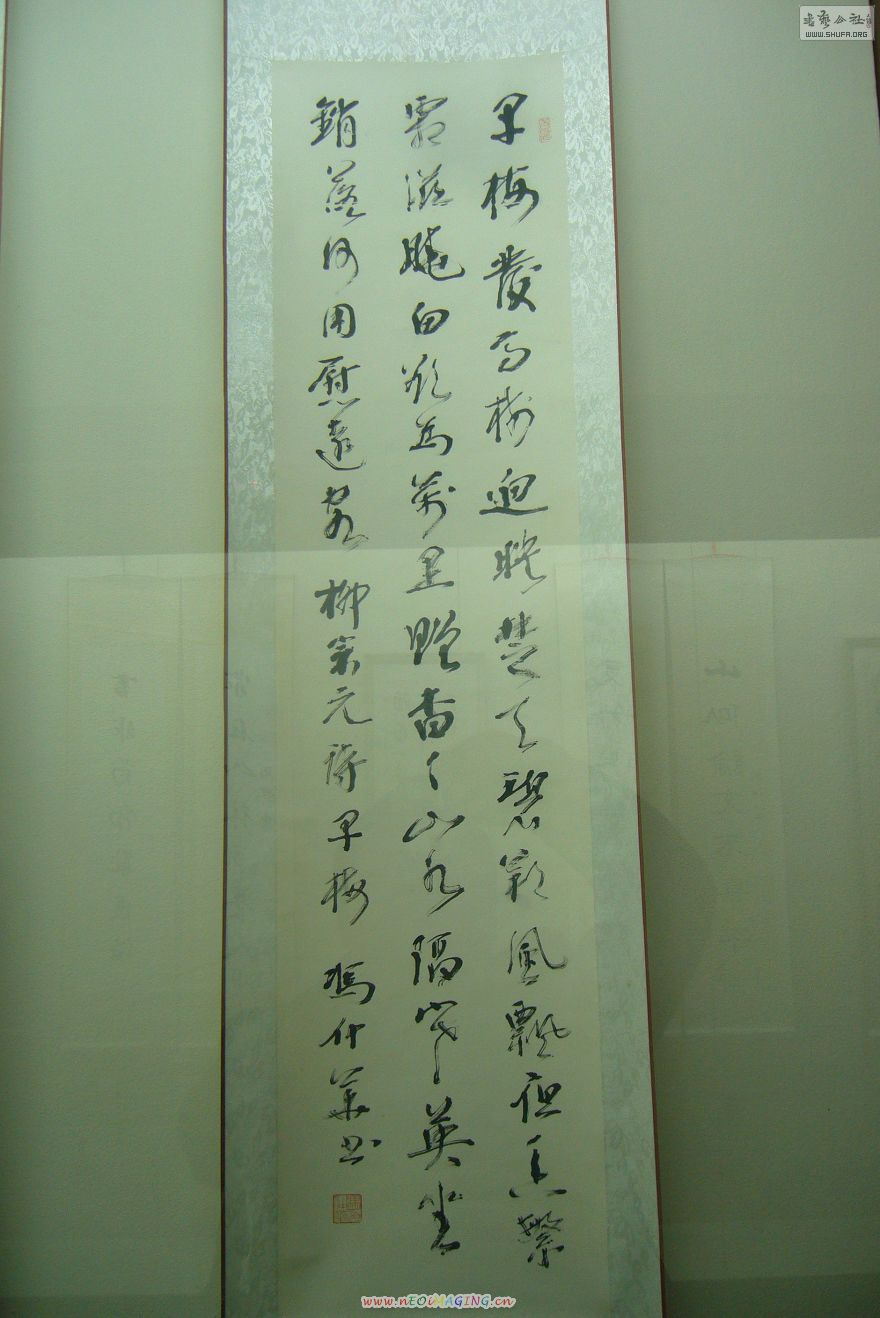 書藝公社
WWW.SHUFA.ORG
早梅發高樹迥映楚天碧朔風飄夜香繁
霜滋曉白欲為萬里贈杳々山水隔寒英坐
銷落何用慰遠客 柳宗元詩早梅 馮什華書
www.nEOiMAGING.cn